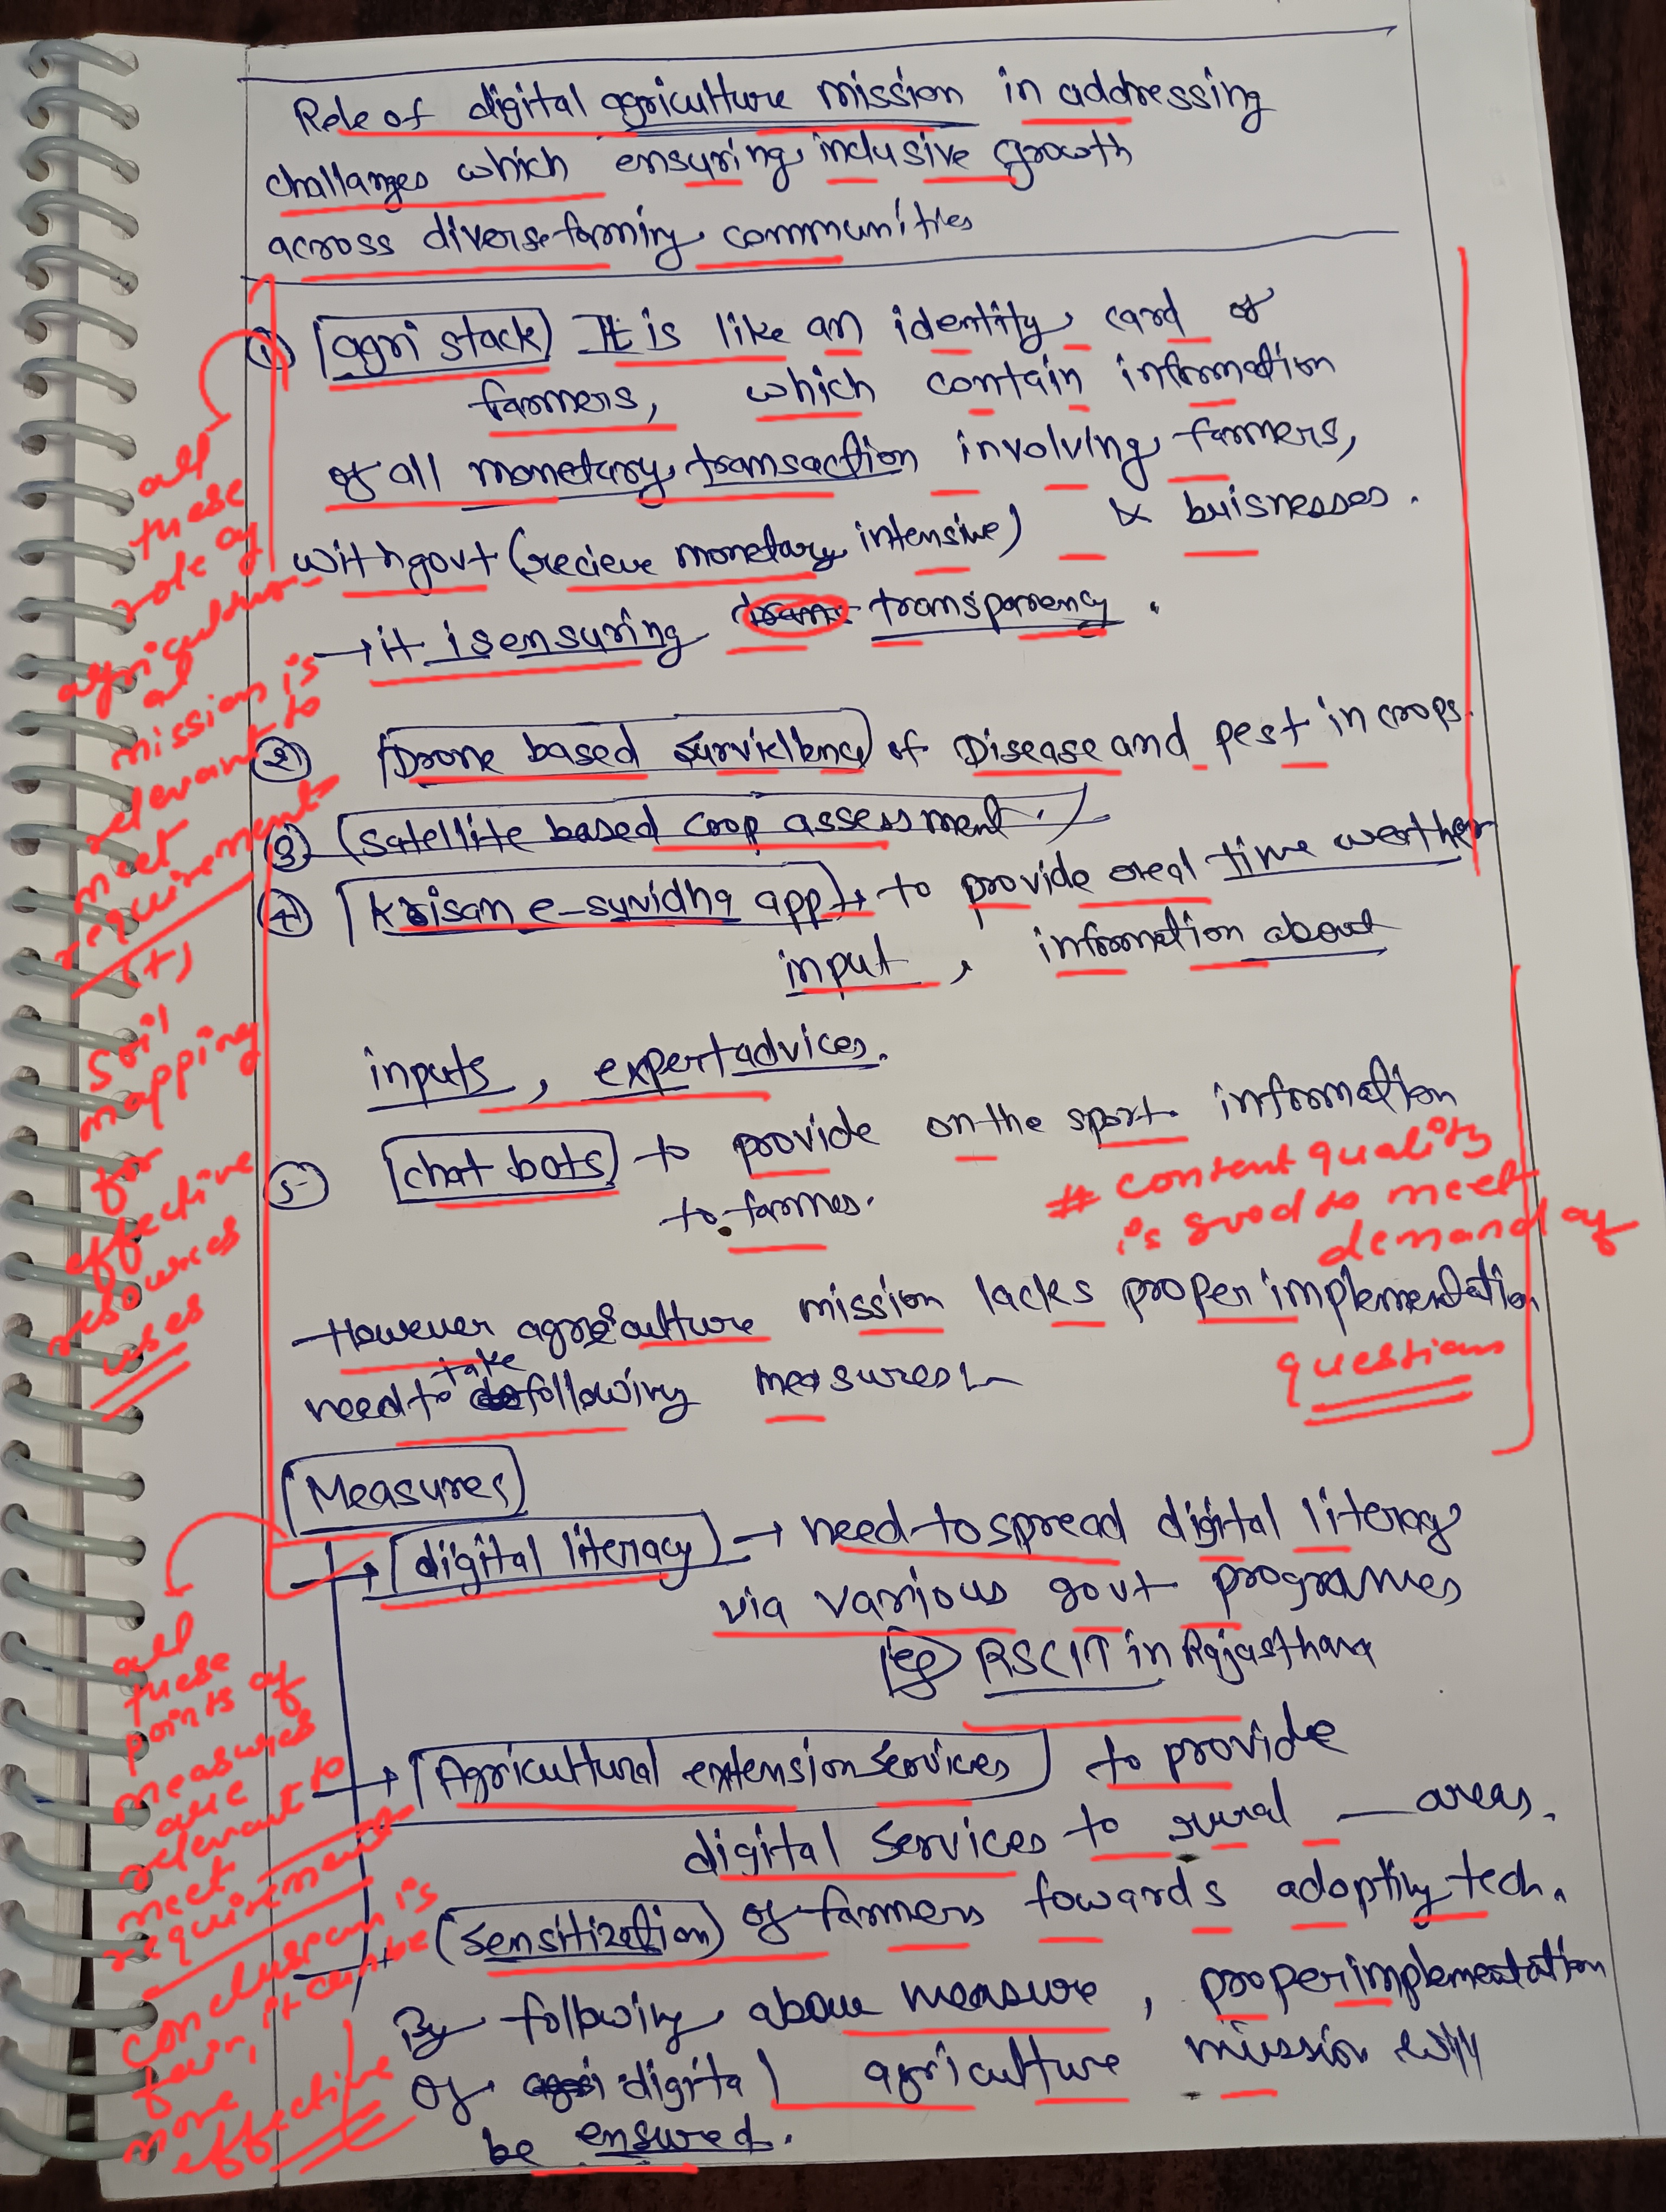 Role of digital agriculture mission in addressing
challanges which ensuring inclusive growth
across diverse farming communities
1) agri stack It is like an identity card of
farmers, which contain information
of all monetary transaction involving farmers,
with govt (recieve monetary intensive) & buisnesses.
→ it is ensuring transparency.
2) Drone based of Disease and pest in crops.
3) Satellite based crop assessment.
4) Krisan e-suvidha app → to provide real time weather
input, information about
inputs, expert advices.
5- chat bots to provide on the sport information
to farmes.
However agriculture mission lacks proper implementation
need to take following measures
Measures
→ digital literacy → need to spread digital literacy
via various govt programmes
eg RSCIT in Rajasthan
→ Agricultural extension services to provide
digital services to rural areas.
→ Sensitization of farmers towards adopting tech.
By following above measure, proper implementation
of digital agriculture mission will
be ensured.
all
these
role of
agricultur-
al
mission is
relevant to
meet
requirement
(+)
soil
mapping
for
effective
resources
uses
# content quality
is good to meet
demand of
question
all
these
points of
measures
are
relevant to
meet
requirement
conclusion is
fair, it can be
more
effective